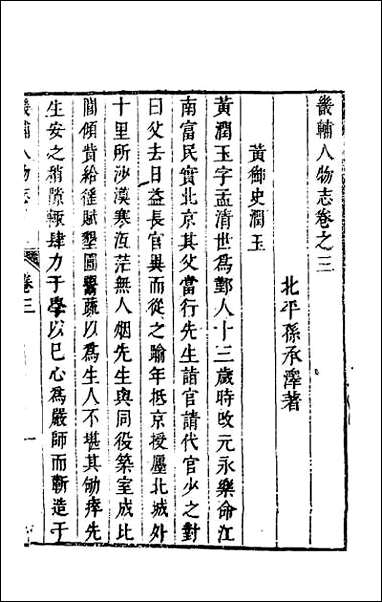 畿輔人物志卷之三
北平孫承澤著
黃御史潤玉
黃潤玉字孟清世爲鄞人十三歲時改元永樂命江
南富民實北京其父當行先生詣官請代官少之對
曰父去日益長官異而從之踰年抵京授廛北城外
十里所沙漠寒沍茫無人烟先生與同役築室成比
閭傾貲給徭賦墾圃鬻蔬以爲生人不堪其劬瘁先
生安之稍隙輒肆力于學以已心爲嚴師而蘄造于
畿輔人物志
卷三
一